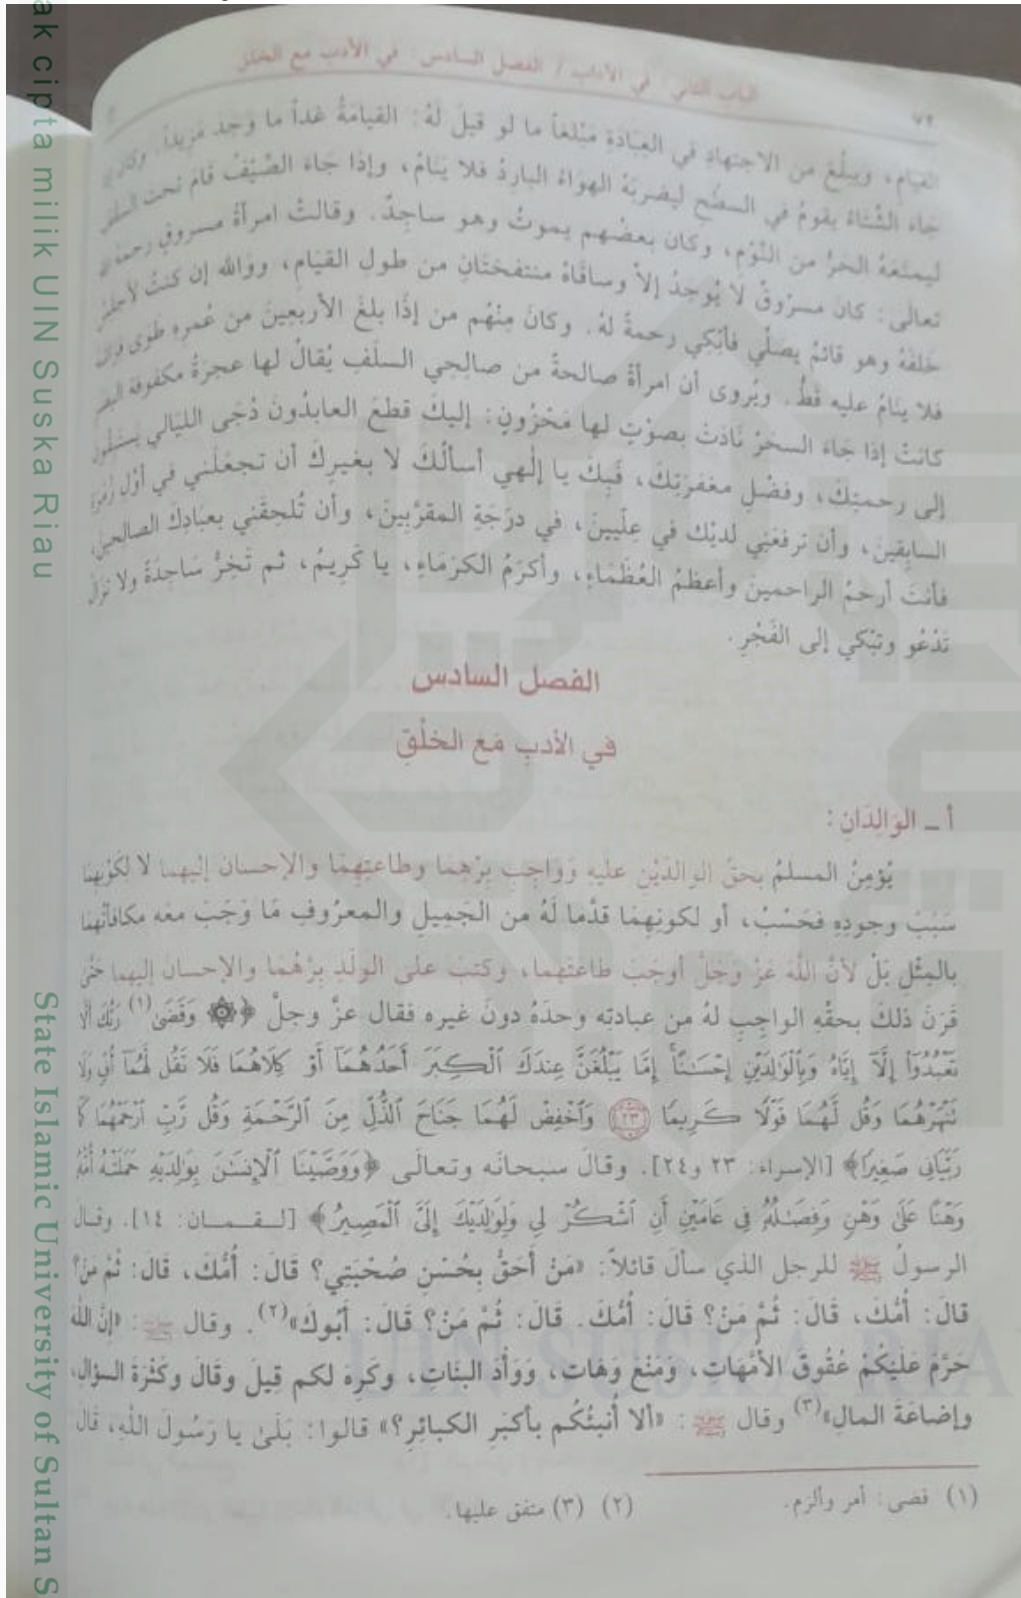 الباب الثاني: في الآداب / الفصل السادس: في الأدب مع الخلق
٧٢
القيام، ويبلُغ من الاجتهادِ في العِبَادَة مَبْلغاً ما لو قيلَ لَهُ: القيامَةُ غداً ما وَجد مَزيداً. وكان إذا
جَاءَ الشِّتَاءُ يقومُ في السطْحِ ليضربَهُ الهواءُ الباردُ فلا يَنَامُ، وإذا جَاءَ الصَّيْفُ قامَ تحت السقْفِ
ليمنَعَهُ الحرُّ من النَّوْمِ، وكان بعضُهم يموتُ وهو ساجِدٌ. وقالتْ امرأةُ مسروقٍ رحمهُ الله
تعالَى: كان مسرُوقٌ لا يُوجدُ إلاَّ وساقَاهُ منتفختَانِ من طولِ القيَامِ، ووَالله إن كنتُ لأجلسُ
خلفَهُ وهو قائمٌ يصلِّي فأَبْكي رحمةً لهُ. وكانَ مِنْهُم من إذَا بلغَ الأربعينَ من عُمرهِ طَوَى فراشَهُ
فلا ينَامُ عليه قَطُّ. ويُروى أن امرأةً صالحةً من صالِحِي السلَفِ يُقالُ لها عجرةُ مكفوفة البصر
كانتْ إذَا جَاءَ السحَرُ نَادَتْ بصوْتٍ لها مَحْزُونٍ: إليكَ قطعَ العابدُونَ دُجَى الليَالي يستَبقُون
إلى رحمتِكَ، وفضْلِ مغفرَتِكَ، فَبِكَ يا إلٰهي أسألُكَ لا بغيركَ أن تجعَلَني في أوَّل زُمْرَةِ
السابِقينَ، وأن ترفعَنِي لديْك في عِلِّيينَ، في درَجَةِ المقرَّبِينَ، وأن تُلحقَني بعبَادِكَ الصالحينَ،
فأنتَ أرحمُ الراحمينَ وأعظمُ العُظَمَاءِ، وأكرَمُ الكرَمَاءِ، يا كَرِيمُ، ثم تَخِرُّ سَاجِدَةً ولا تزَالُ
تَدْعُو وتبْكي إلى الفَجْرِ.
الفصل السادس
في الأدبِ مَع الخلْقِ
أ ـ الوَالِدَانِ:
يُؤمِنُ المسلمُ بحقِّ الوالدَيْن عليهِ وَوَاجبِ برِّهِمَا وطاعتِهِمَا والإحسانِ إليهما لا لكَوْنِهِمَا
سَبَبَ وجودِهِ فحَسْبُ، أو لكونِهِمَا قدَّما لَهُ من الجَمِيلِ والمعرُوفِ مَا وَجَبَ معَه مكافأتُهمَا
بالمِثْلِ بَلْ لأنَّ اللَّهَ عَزَّ وَجَلَّ أوجَبَ طاعَتَهما، وكتبَ على الولَدِ بِرَّهُما والإحسانَ إليهما حَتَّى
قَرَنَ ذلكَ بحقِّهِ الواجِبِ لهُ من عبادَتهِ وحدَهُ دونَ غيره فقال عزَّ وجلَّ ﴿۞ وَقَضَىٰ(١) رَبُّكَ أَلَّا
تَعْبُدُوٓا۟ إِلَّآ إِيَّاهُ وَبِٱلْوَٰلِدَيْنِ إِحْسَٰنًا إِمَّا يَبْلُغَنَّ عِندَكَ ٱلْكِبَرَ أَحَدُهُمَآ أَوْ كِلَاهُمَا فَلَا تَقُل لَّهُمَآ أُفٍّ وَلَا
تَنْهَرْهُمَا وَقُل لَّهُمَا قَوْلًا كَرِيمًا ۝٢٣ وَٱخْفِضْ لَهُمَا جَنَاحَ ٱلذُّلِّ مِنَ ٱلرَّحْمَةِ وَقُل رَّبِّ ٱرْحَمْهُمَا كَمَا
رَبَّيَانِي صَغِيرًا﴾ [الإسراء: ٢٣ و٢٤]. وقالَ سبحانَه وتعالَى ﴿وَوَصَّيْنَا ٱلْإِنسَٰنَ بِوَٰلِدَيْهِ حَمَلَتْهُ أُمُّهُ
وَهْنًا عَلَىٰ وَهْنٍ وَفِصَٰلُهُۥ فِي عَامَيْنِ أَنِ ٱشْكُرْ لِي وَلِوَٰلِدَيْكَ إِلَيَّ ٱلْمَصِيرُ﴾ [لقمان: ١٤]. وقالَ
الرسولُ ﷺ للرجلِ الذي سألَ قائلاً: «مَنْ أحَقُّ بِحُسْنِ صُحْبَتِي؟ قالَ: أُمُّكَ، قَالَ: ثُمَّ مَنْ؟
قالَ: أُمُّكَ، قَالَ: ثُمَّ مَنْ؟ قالَ: أُمُّكَ. قَالَ: ثُمَّ مَنْ؟ قَالَ: أَبُوكَ»(٢). وقال ﷺ: «إنَّ اللَّهَ
حَرَّمَ عَلَيْكُمْ عُقُوقَ الأُمَّهَاتِ، وَمَنْعَ وَهَاتِ، وَوَأْدَ البَنَاتِ، وكَرِهَ لكم قِيلَ وقَالَ وكَثْرَةَ السؤالِ،
وإضاعَةَ المالِ»(٣) وقال ﷺ: «ألا أُنبئُكُم بأكبَرِ الكبائِرِ؟» قالوا: بَلَىٰ يا رَسُولَ اللَّهِ، قَالَ
(١) قضى: أمر وألزم.
(٢) (٣) متفق عليها.
ak cipta milik UIN Suska Riau
State Islamic University of Sultan S
UIN SUSKA RIA